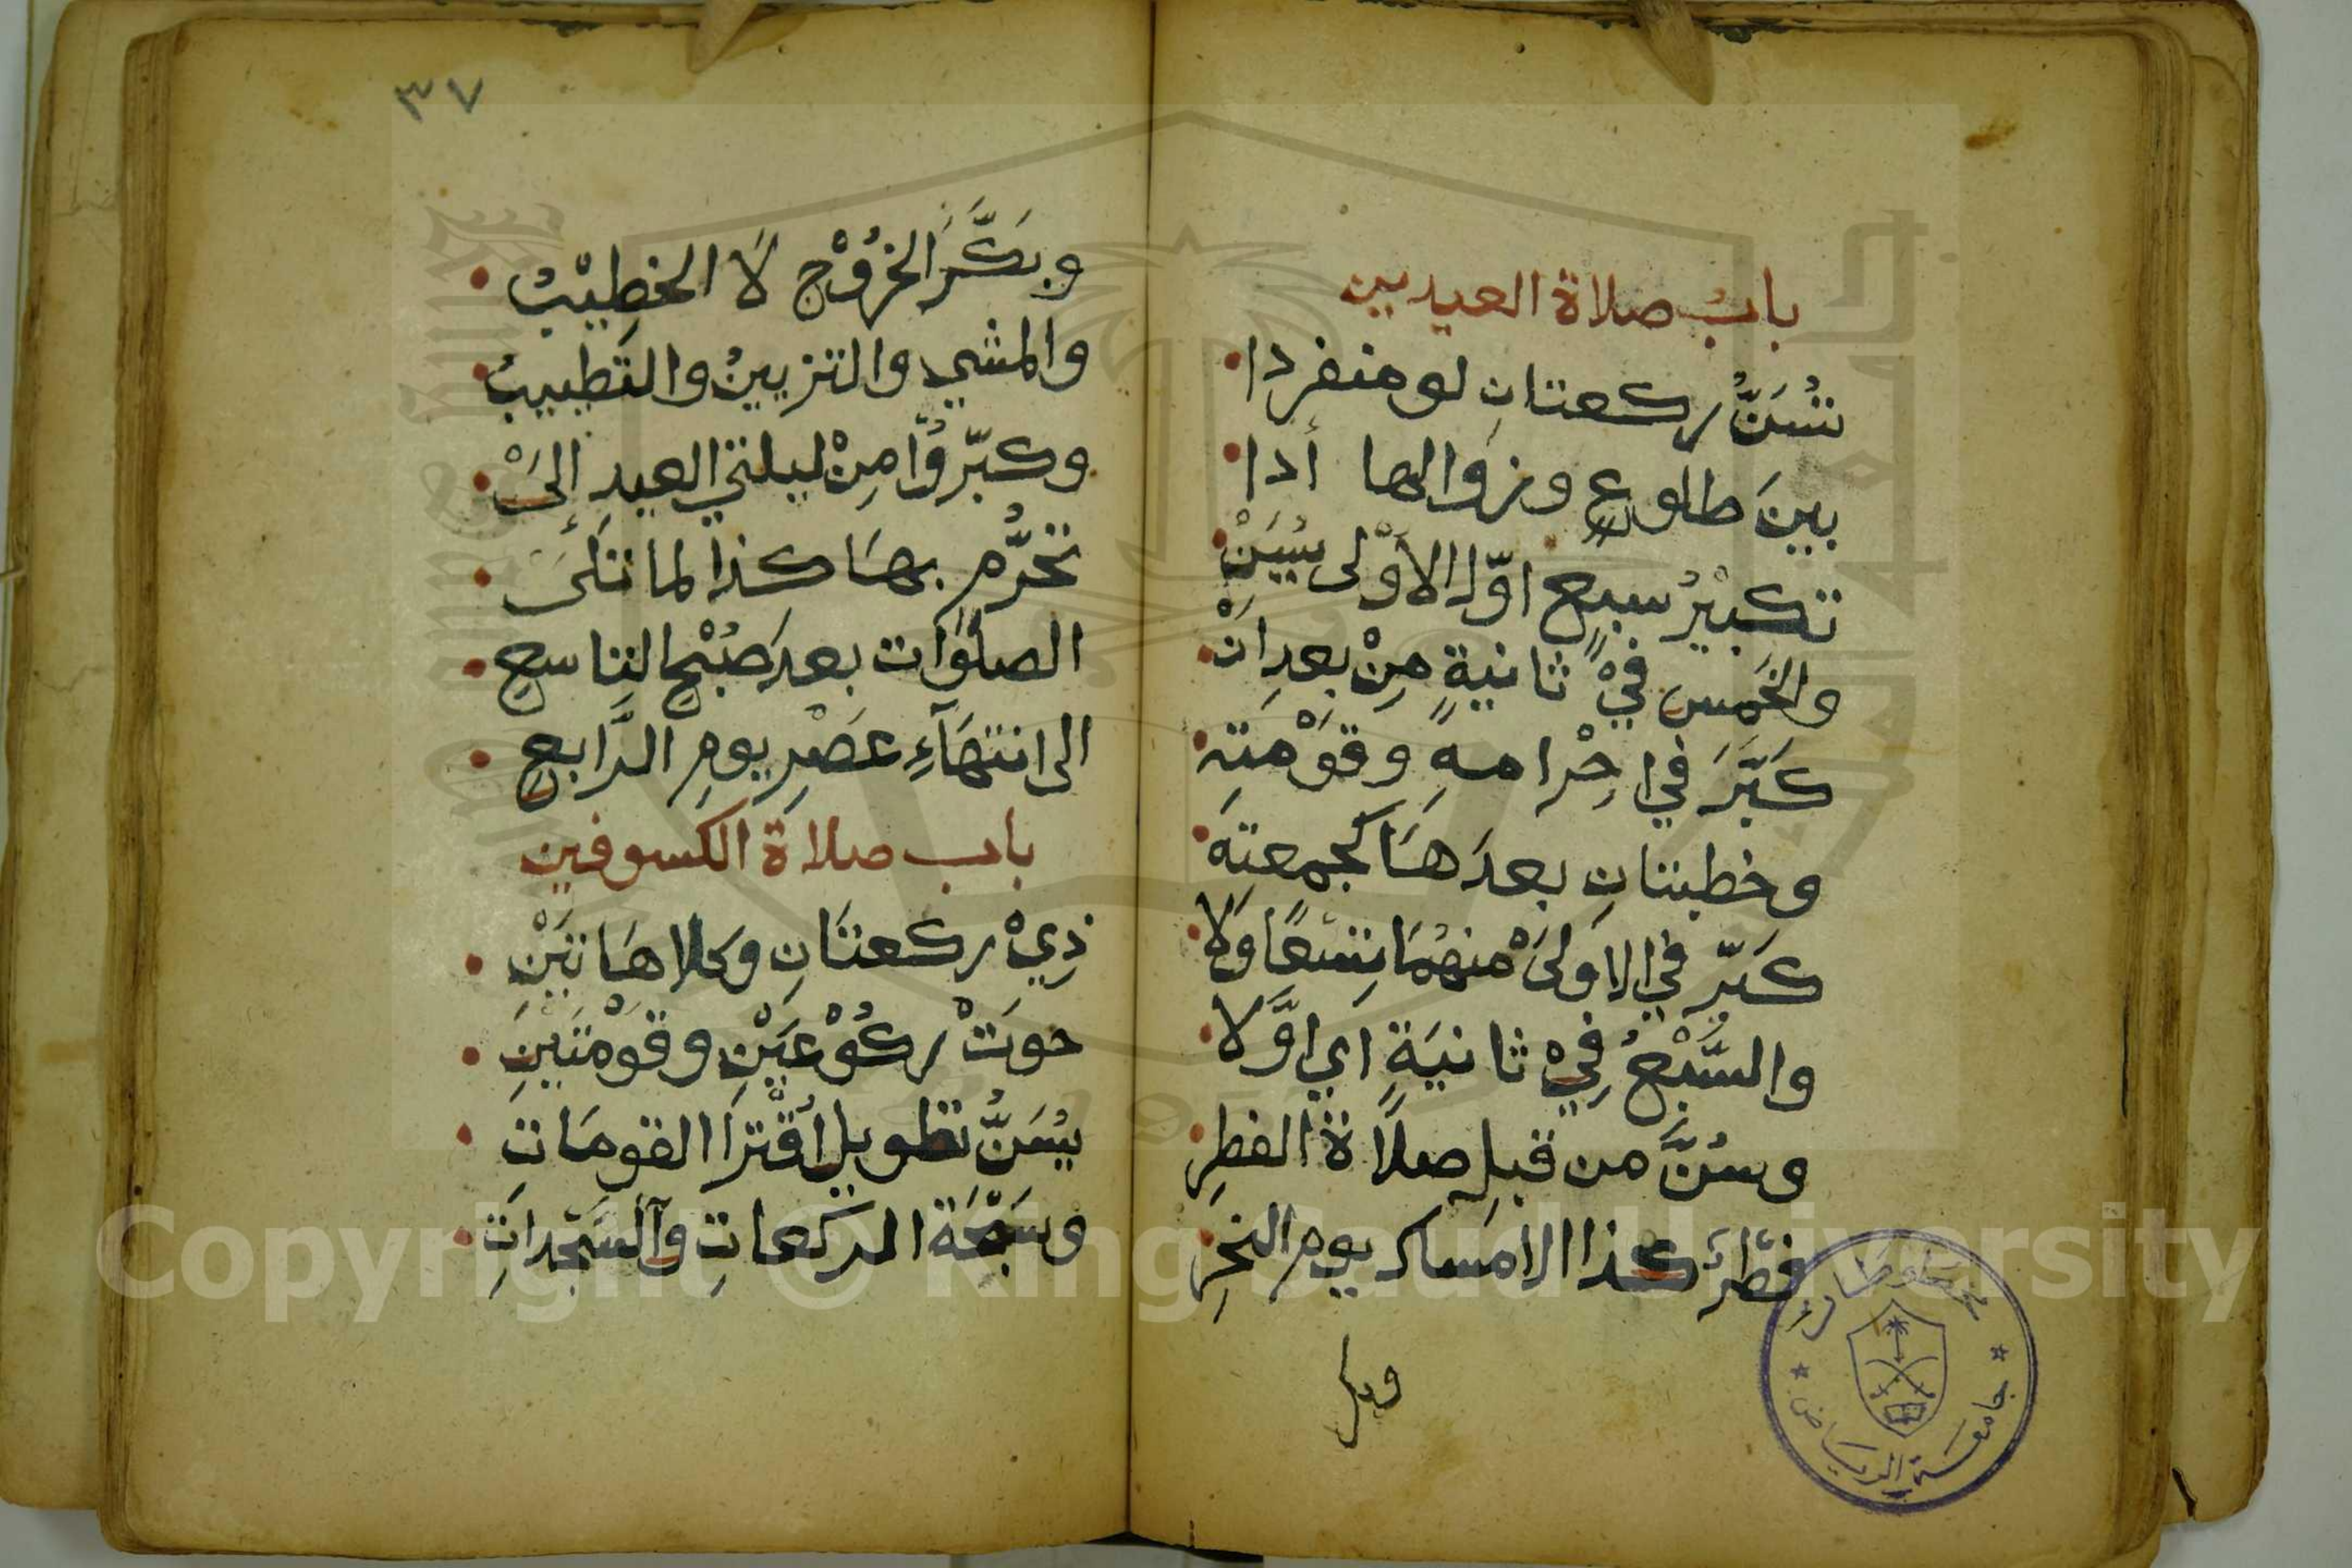 باب صلاة العيدين
تُسَنُّ ركعتانِ لو منفردا
بينَ طلوعٍ وزوالها أدا
تكبيرُ سبعٍ اوّلَ الاوْلى يُسَنْ
والخَمسِ فيْ ثانيةٍ مِنْ بعدِ انْ
كبَّرَ في احِْرامهِ وقوْمتِه
وخطبتانِ بعدَهَا كجمعتِه
كبّر في الاوَلىَ منهُمَا تِسْعًا وَلا
والسَّبْعُ فِيْ ثانيَةٍ اي اوَّلا
وسُنَّ من قبلِ صلاَة الفطرِ
فطْرٌ كذا الامساك يومِ النحرِ
وبكر
٣٧
وبَكَّرَ الخرُوْج لاَ الخطِيْبُ
والمشي والتزيينُ والتطييبُ
وكبّرُوْا مِنْ ليلتي العيدِ إلىَْ
تحرُّمٍ بهَا كذا لما تلَىَ
الصلوَات بعدَ صُبْحِ التاسعِ
الى انتهَآءِ عصْرِ يومِ الرَّابعِ
باب صلاة الكسوفين
ذِيْ ركعتَانِ وكلا هَاتيْنِ
حوَتْ ركُوْعَيْنِ وقوْمتَينِ
يُسَنُّ تطويل اُقْترَا القومَاتِ
وسَبْحَة الركعاتِ والسَّجْداتِ
مخطوطات
جامعة الرياض
Copyright © King Saud University